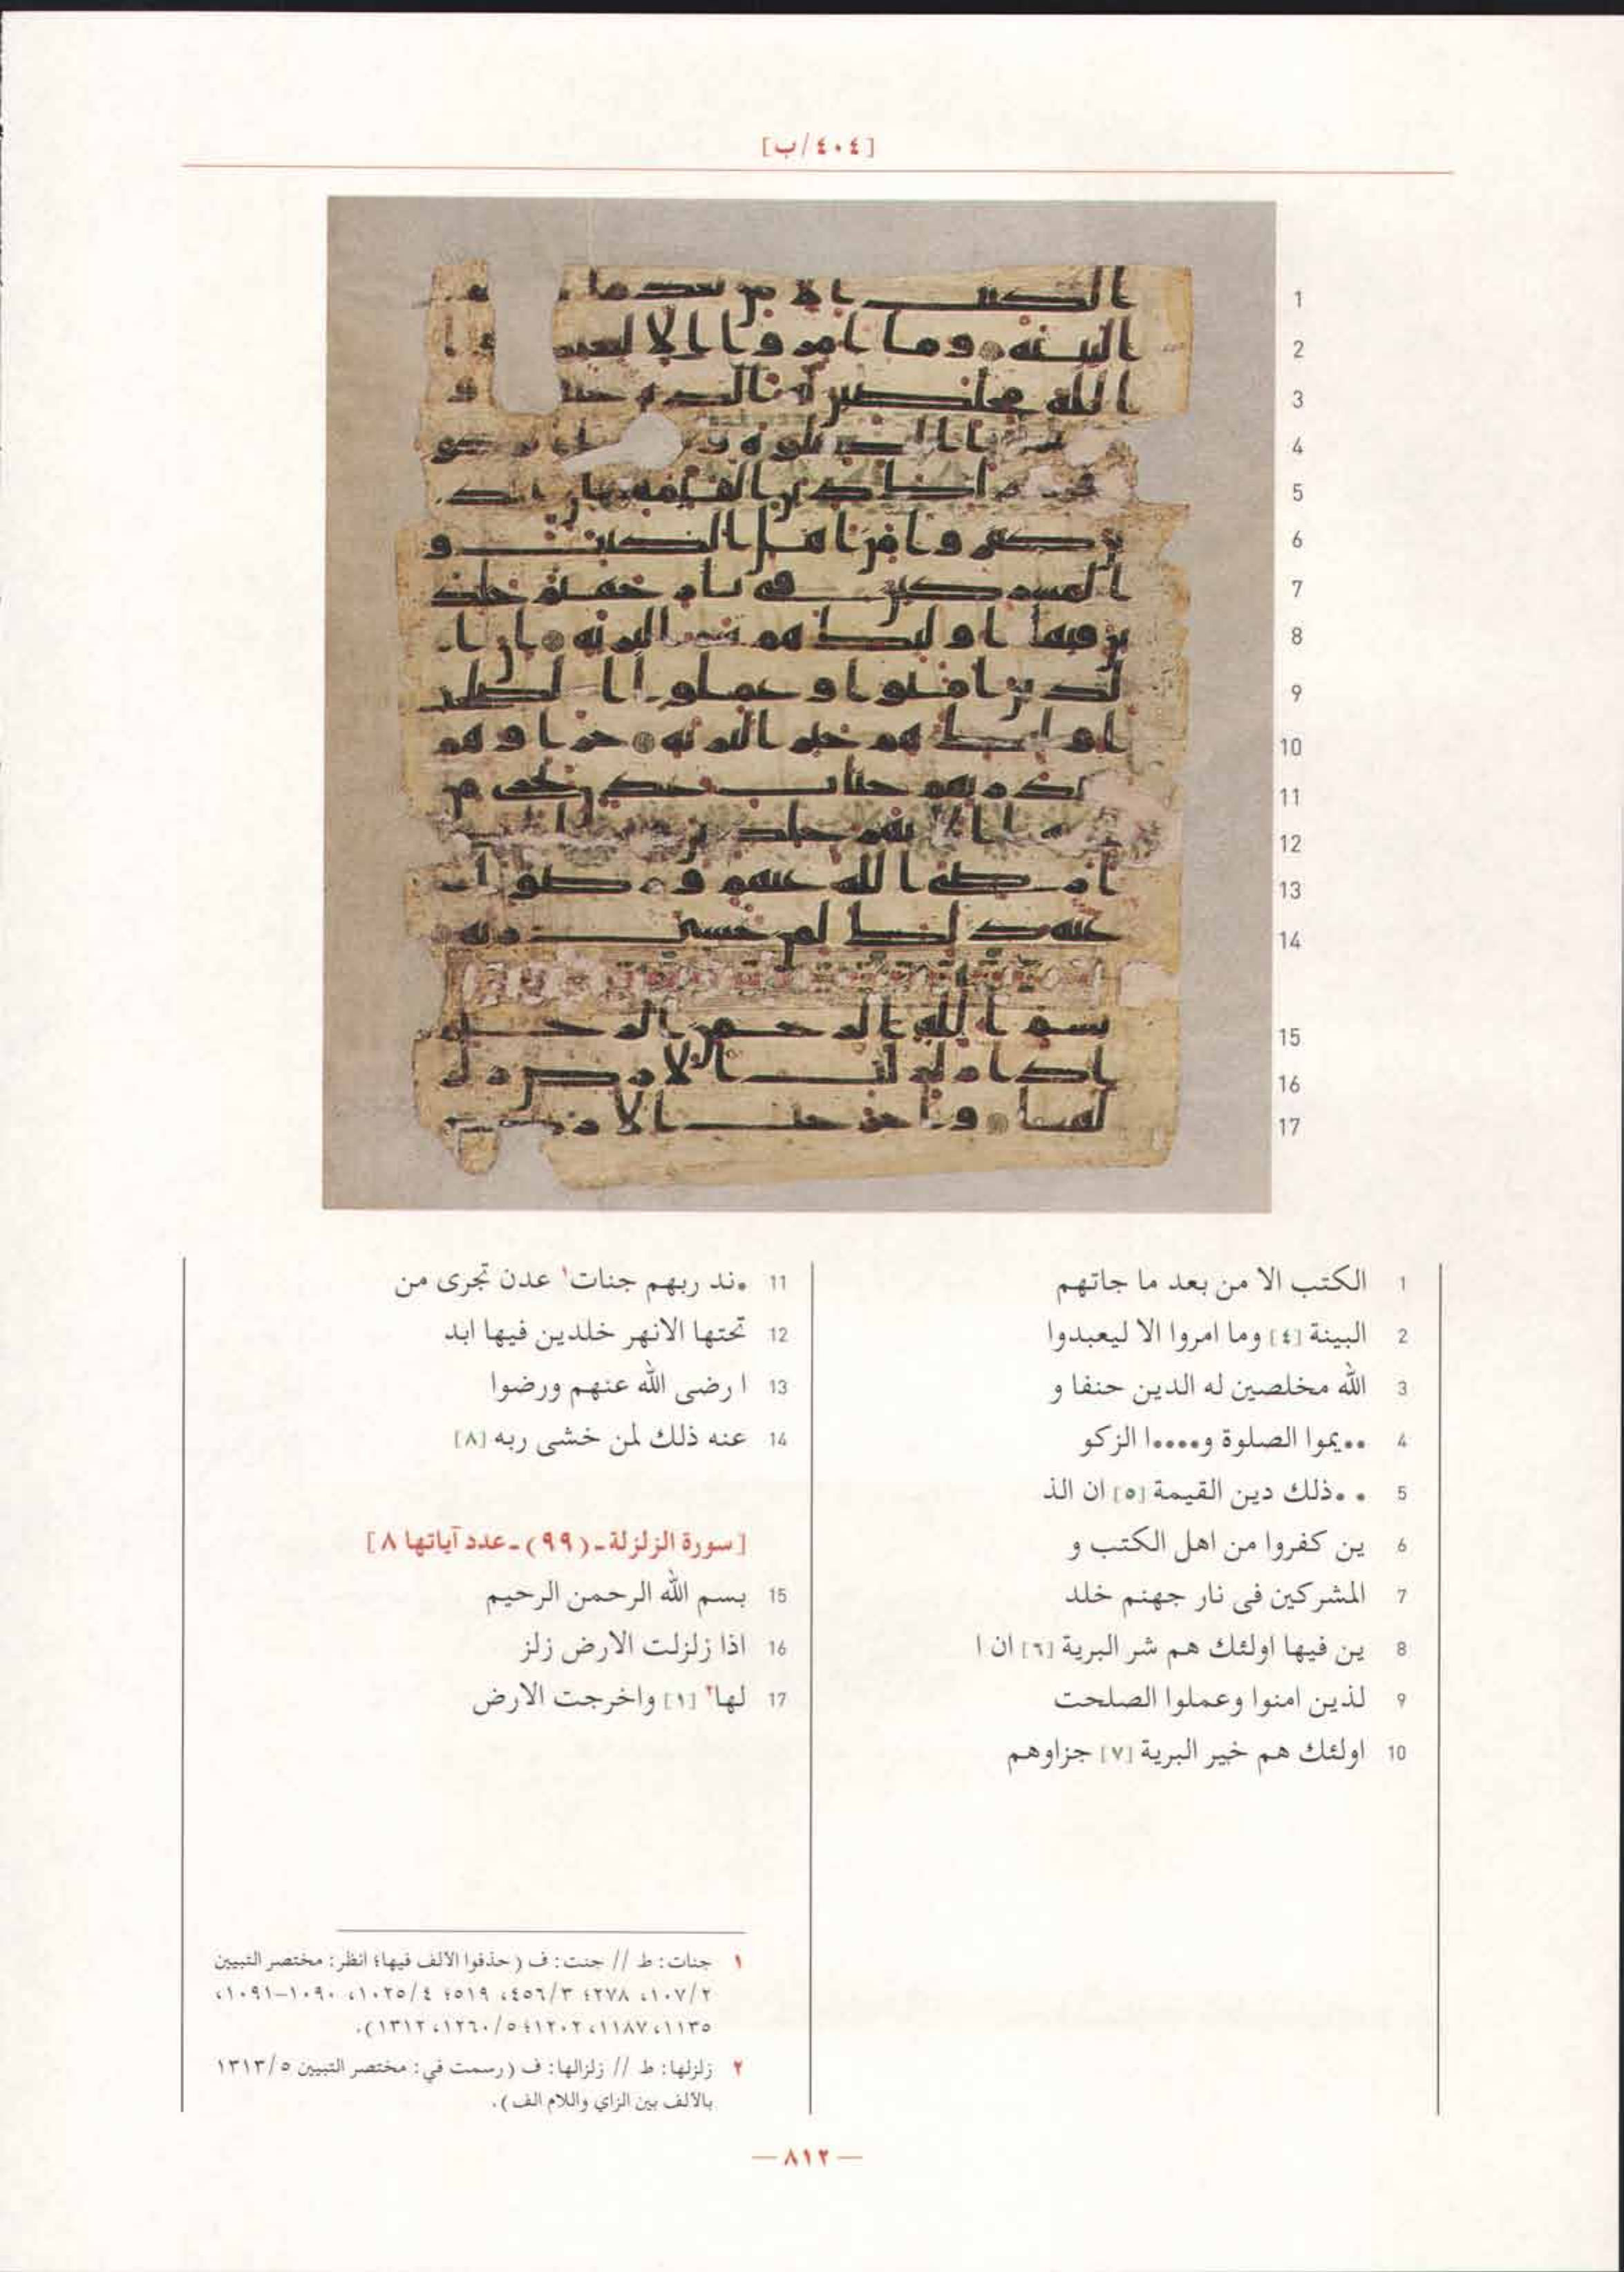 [٤٠٤/ب]
1 الكتب الا من بعد ما جاتهم
2 البينة [٤] وما امروا الا ليعبدوا
3 الله مخلصين له الدين حنفا و
4 ••يموا الصلوة و••••ا الزكو
5 • •ذلك دين القيمة [٥] ان الذ
6 ين كفروا من اهل الكتب و
7 المشركين فى نار جهنم خلد
8 ين فيها اولئك هم شر البرية [٦] ان ا
9 لذين امنوا وعملوا الصلحت
10 اولئك هم خير البرية [٧] جزاوهم
11 •ند ربهم جنات١ عدن تجرى من
12 تحتها الانهر خلدين فيها ابد
13 ا رضى الله عنهم ورضوا
14 عنه ذلك لمن خشى ربه [٨]
[سورة الزلزلة ـ (٩٩) ـ عدد آياتها ٨]
15 بسم الله الرحمن الرحيم
16 اذا زلزلت الارض زلز
17 لها٢ [١] واخرجت الارض
١ جنات: ط // جنت: ف (حذفوا الألف فيها؛ انظر: مختصر التبيين
٢/١٠٧، ٢٧٨؛ ٣/٤٥٦، ٥١٩؛ ٤/١٠٢٥، ١٠٩٠-١٠٩١،
١١٣٥، ١١٨٧، ١٢٠٢؛ ٥/١٢٦٠، ١٣١٢).
٢ زلزلها: ط // زلزالها: ف (رسمت في: مختصر التبيين ٥/١٣١٣
بالألف بين الزاي واللام الف).
— ٨١٢ —